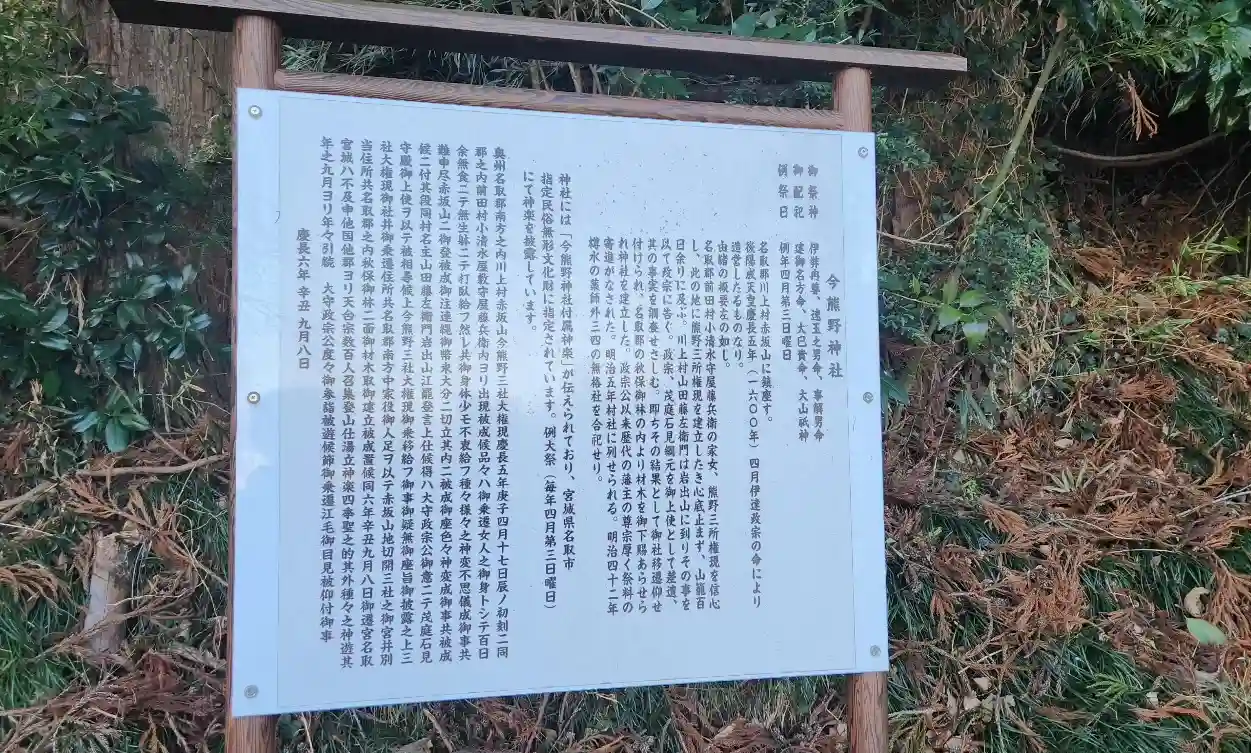 今熊野神社
御祭神 伊弉冉尊、速玉之男命、事解男命
御配祀 建御名方命、大巳貴命、大山祇神
例祭日 例年四月第三日曜日
名取郡川上村赤坂山に鎮座す。
後陽成天皇慶長五年(一六〇〇年)四月伊達政宗の命により
造営したるものなり。
由緒の概要左の如し。
名取郡前田村小清水守屋藤兵衛の家女、熊野三所権現を信心
し、此の地に熊野三所権現を建立したき心底止まず、山籠百
日余りに及ぶ。川上村山田藤左衛門は岩出山に到りその事を
以て政宗に告ぐ。政宗、茂庭石見綱元を御上使として差遣、
其の事実を調査せさしむ。即ちその結果として御社移遷仰せ
付けられ、名取郡の秋保御林の内より材木を御下賜あらせら
れ神社を建立した。政宗公以来歴代の藩主の尊宗厚く祭料の
寄進がなされた。明治五年村社に列せられる。明治四十二年
樽水の薬師外三四の無格社を合祀せり。
神社には「今熊野神社付属神楽」が伝えられており、宮城県名取市
指定民俗無形文化財に指定されています。例大祭(毎年四月第三日曜日)
にて神楽を披露しています。
奥州名取郡南方之内川上村赤坂山今熊野三社大権現慶長五年庚子四月十七日辰ノ初刻二同
郡之内前田村小清水屋敷守屋藤兵衛内ヨリ出現被成候品々ハ御乗遷女人之御身トシテ百日
余無食ニテ無生躰ニテ打臥給フ然レ共御身体少モ不衷給フ種々様々之神変不思儀成御事共
難申尽赤坂山二御登被成御注連縄御幣束大分二切立其内二被成御座色々神変成御事共被成
候二付其段同村名主山田藤左衛門岩出山江罷登言上仕候得ハ大守政宗公御意ニテ茂庭石見
守殿御上使ヲ以テ被相尋候上今熊野三社大権現御乗移給フ御事御疑無御座旨御披露之上三
社大権現御社井御乗遷住所共名取郡南方中家役御人足ヲ以テ赤坂山地切開三社之御宮井別
当住所共名取郡之内秋保御林二面御材木取御建立被成置候同六年辛丑九月八日御遷宮名取
宮城ハ不及申他国他郡ヨリ天台宗数百人召集登山仕湯立神楽四季聖之的其外種々之神遊其
年之九月ヨリ年々引続 大守政宗公度々御参詣被遊候節御乗遷江毛御目見被仰付御事
慶長六年 辛丑 九月八日